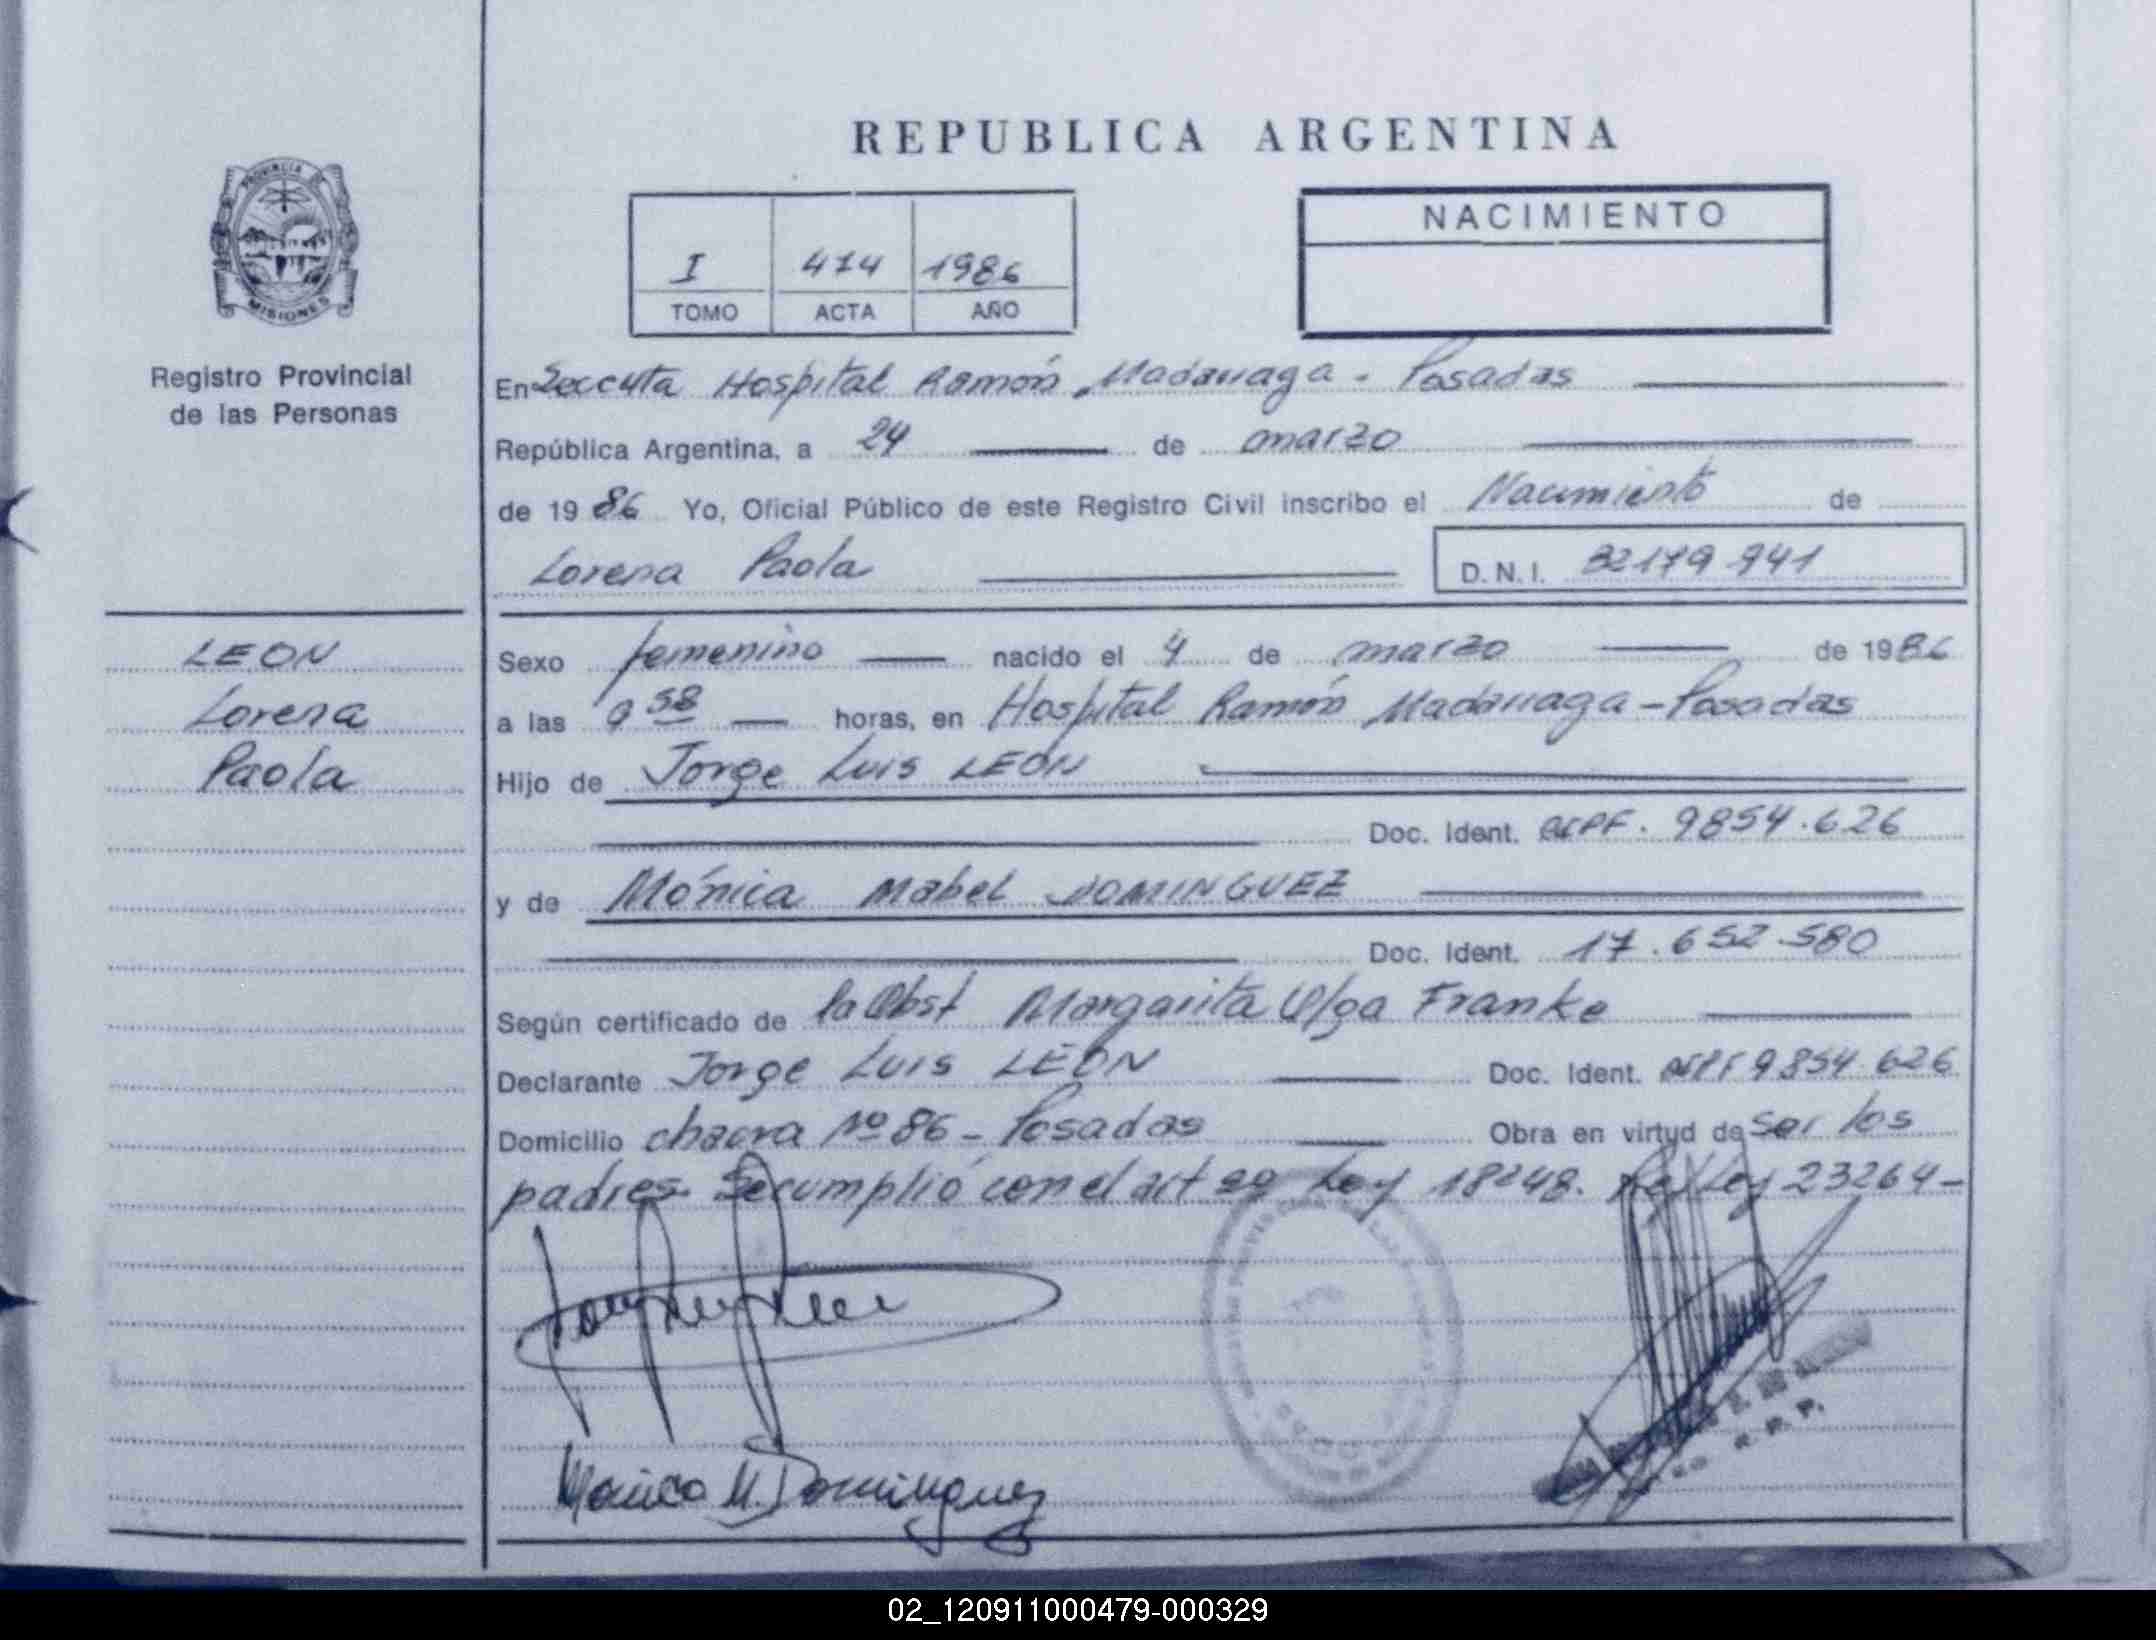 REPUBLICA ARGENTINA
PROVINCIA DE MISIONES
Registro Provincial
de las Personas
I 414 1986
TOMO ACTA AÑO
NACIMIENTO
En Seccuta Hospital Ramón Madariaga - Posadas
República Argentina, a 24 de marzo
de 1986 Yo, Oficial Público de este Registro Civil inscribo el Nacimiento de
Lorena Paola D.N.I. 32179.941
LEON
Lorena
Paola
Sexo femenino nacido el 4 de marzo de 1986
a las 9 58 horas, en Hospital Ramón Madariaga - Posadas
Hijo de Jorge Luis LEON
Doc. Ident. 9854.626
y de Mónica Mabel DOMINGUEZ
Doc. Ident. 17.652.580
Según certificado de la Obst Margarita Olga Franke
Declarante Jorge Luis LEON Doc. Ident. 9854.626
Domicilio chacra Nº 86 - Posadas Obra en virtud de ser los
padres. Se cumplió con el art Ley 18248. Ley 23264-
Monica M. Dominguez
R. P. P.
02_120911000479-000329